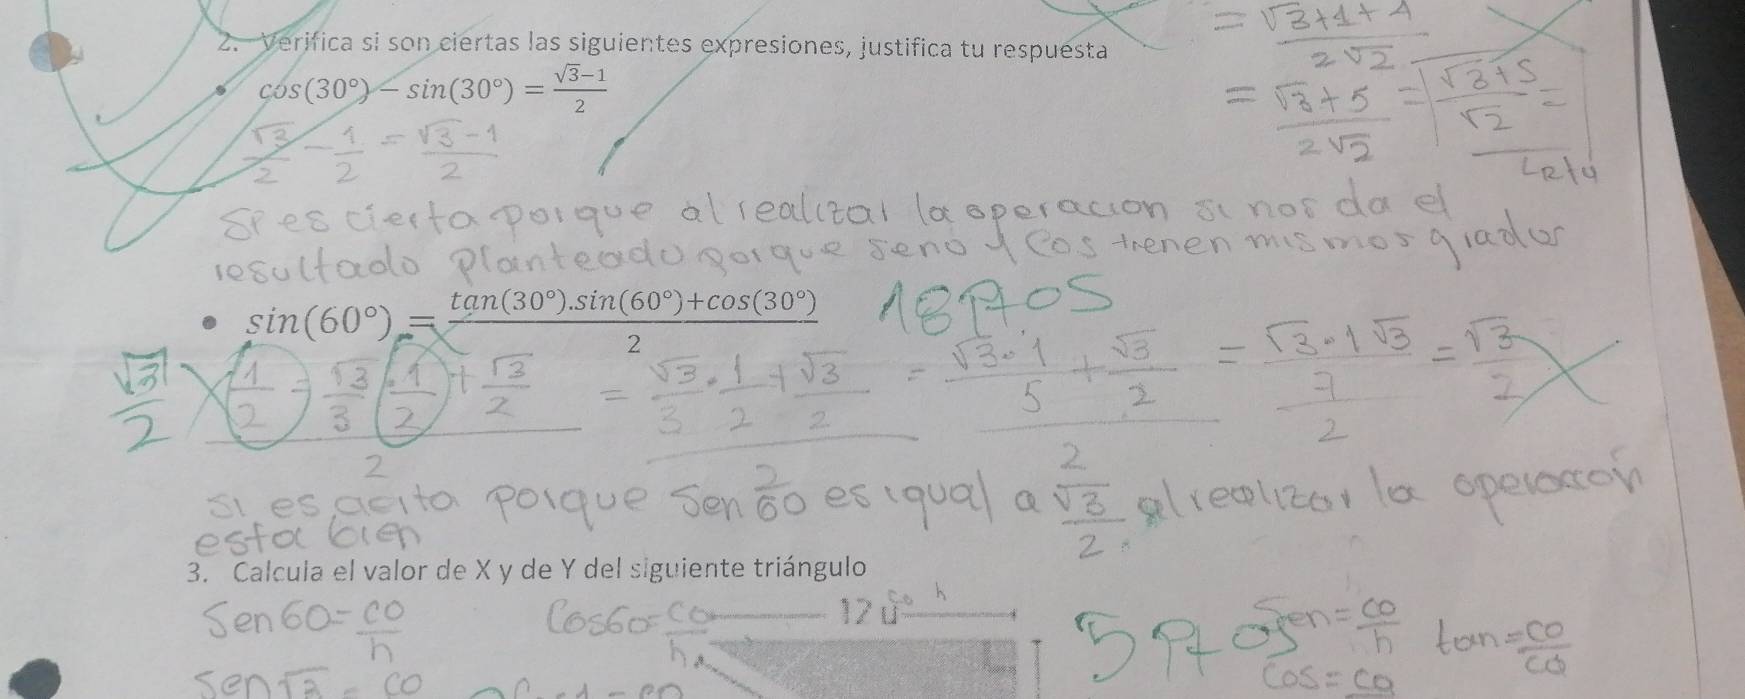 = √3+1+1
2√2
2. Verifica si son ciertas las siguientes expresiones, justifica tu respuesta
cos(30°) − sin(30°) = √3−1 / 2
= √3+5 / 2√2 = √3+5 / √2 =
√3/2 − 1/2 = √3−1 / 2
si es cierta porque al realizar la operacion si nos da el
resultado planteado porque seno y Cos tienen mismos grados
• sin(60°) = tan(30°).sin(60°)+cos(30°) / 2
18 Ptos
√3/2 1/2 = √3/3 · 1/2 + √3/2 / 2 = √3/3 · 1/2 + √3/2 / 2 = √3·1/5 + √3/2 / 2 = √3·1√3 / 7 / 2 = √3/2
si es acita porque Sen 60 es igual a √3/2 al realizar la operaccon
esta bien
3. Calcula el valor de X y de Y del siguiente triángulo
Sen60= co/h Cos60= co/h 12 u co h 5 Ptos Sen= co/h tan= co/ca
Sen √3 = co Cos= ca